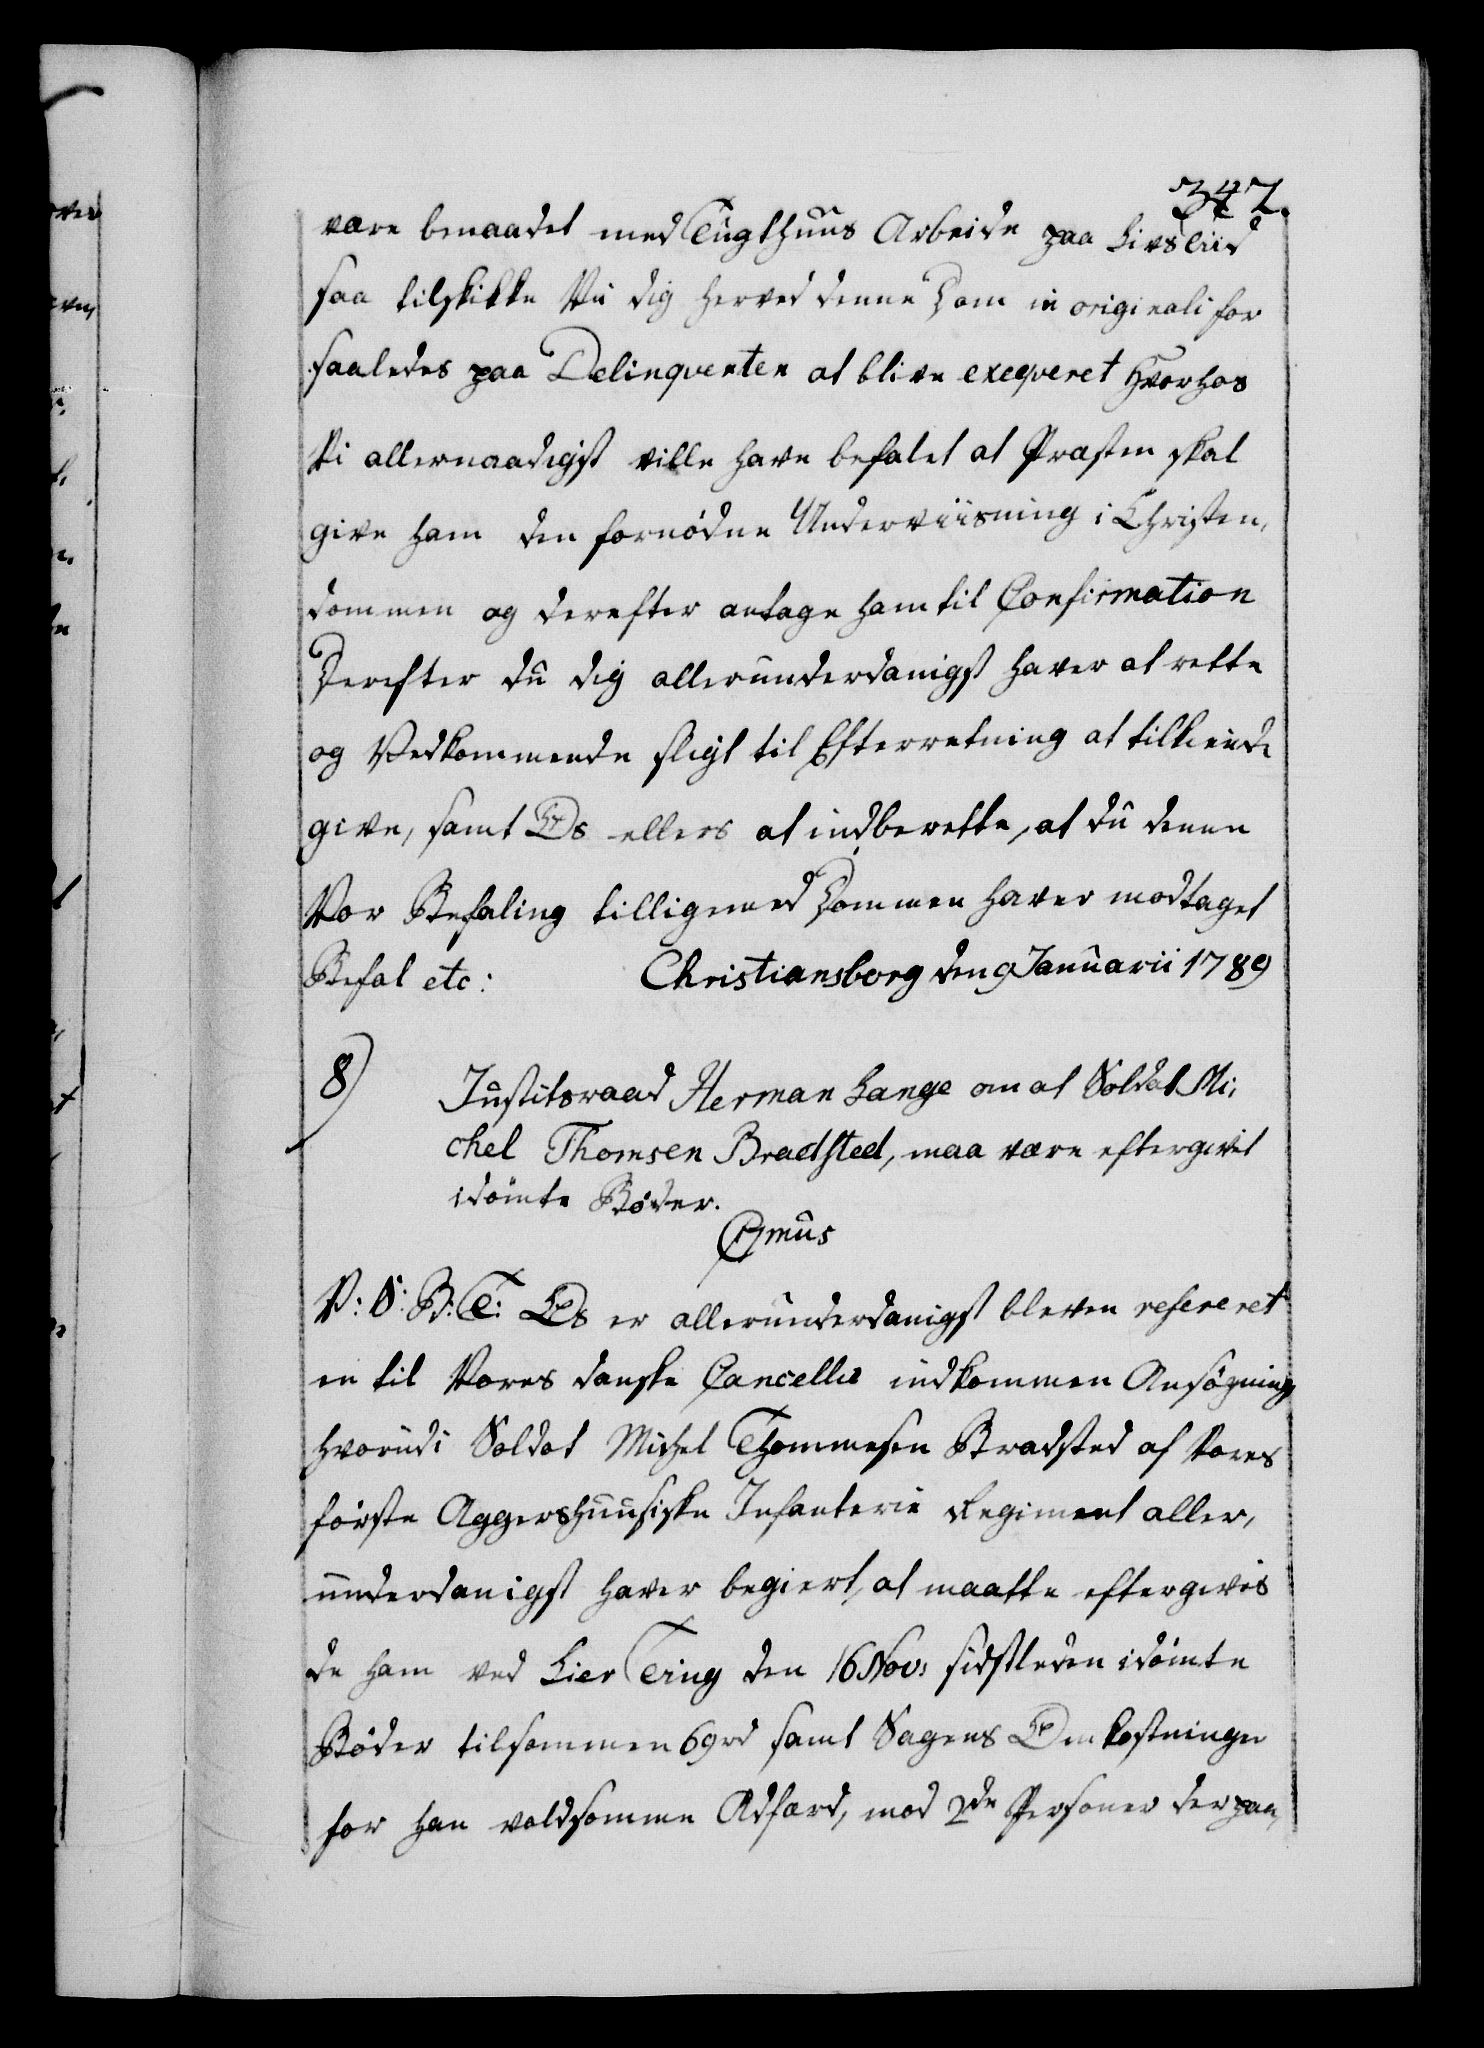 347.
være benaadet med Tugthuus Arbeide paa Livstiid
saa tilskikke Vii dig herved denne Dom in originali for
saaledes paa Delinqventen at blive exeqveret Hvorhos
Vi allernaadigst ville have befalet at Præsten skal
give ham den fornødne Underviisning i Christen,
dommen og derefter antage ham til Confirmation
Derefter du dig allerunderdanigst haver at rette
og Vedkommende sligt til Efterretning at tilkiende
give, samt Os ellers at indberette, at du denne
Vor Befaling tilligemed Dommen haver modtaget
Befal etc: Christiansborg den 9 Januarii 1789
8)
Justitsraad Herman Lange om at Soldat Mi,
chel Thomsen Bradsted, maa være eftergivet
idømte Bøder.
C7mus
V: S: B: T: Os er allerunderdanigst bleven refereret
en til Vores danske Cancellie indkommen Ansøgning
hvorudi Soldat Michel Thommesen Bradsted af Vores
første Aggershuusiske Infanterie Regiment aller,
underdanigst haver begiert, at maatte eftergives
de ham ved Lier Ting den 16 Nov: sidstleden idømte
Bøder tilsammen 69 rd samt Sagens Omkostninger
for han voldsomme Adfærd, mod 2de Personer der paa,